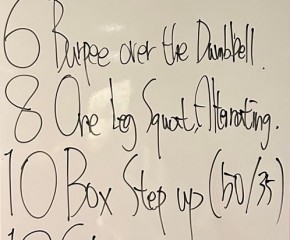 6 Burpee over the Dumbbell.
8 One Leg Squat. Alternating.
10 Box Step up (50/35)